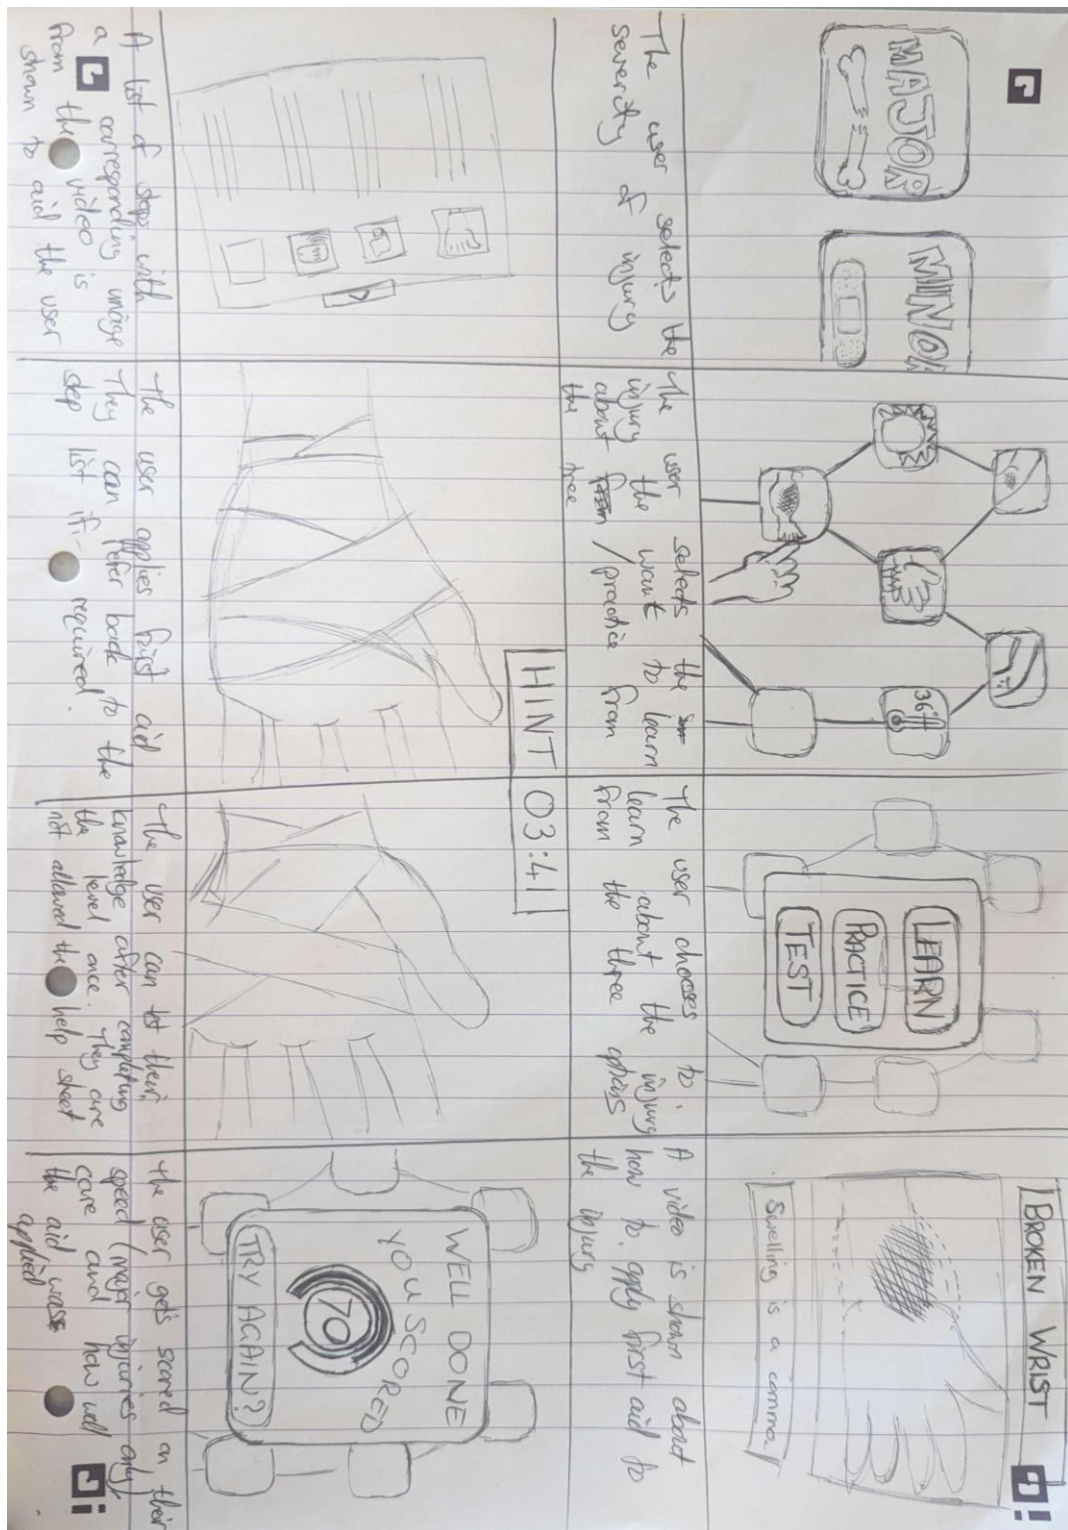 MAJOR
MINOR
The user selects the
severity of injury
36°
The user selects the
injury the want to learn
about from / practice from
the tree
LEARN
PRACTICE
TEST
The user chooses to
learn about the injury
from the three options
BROKEN WRIST
Swelling is a common
A video is shown about
how to apply first aid to
the injury
A list of steps with
a corresponding image
from the video is
shown to aid the user
HINT 03:41
The user applies first aid
They can refer back to the
step list if required.
The user can tst their
knowledge after completing
the level once. They are
not allowed the help sheet
WELL DONE
YOU SCORED
70
TRY AGAIN?
The user gets scored on their
speed (major injuries only)
care and how well
the aid was
applied